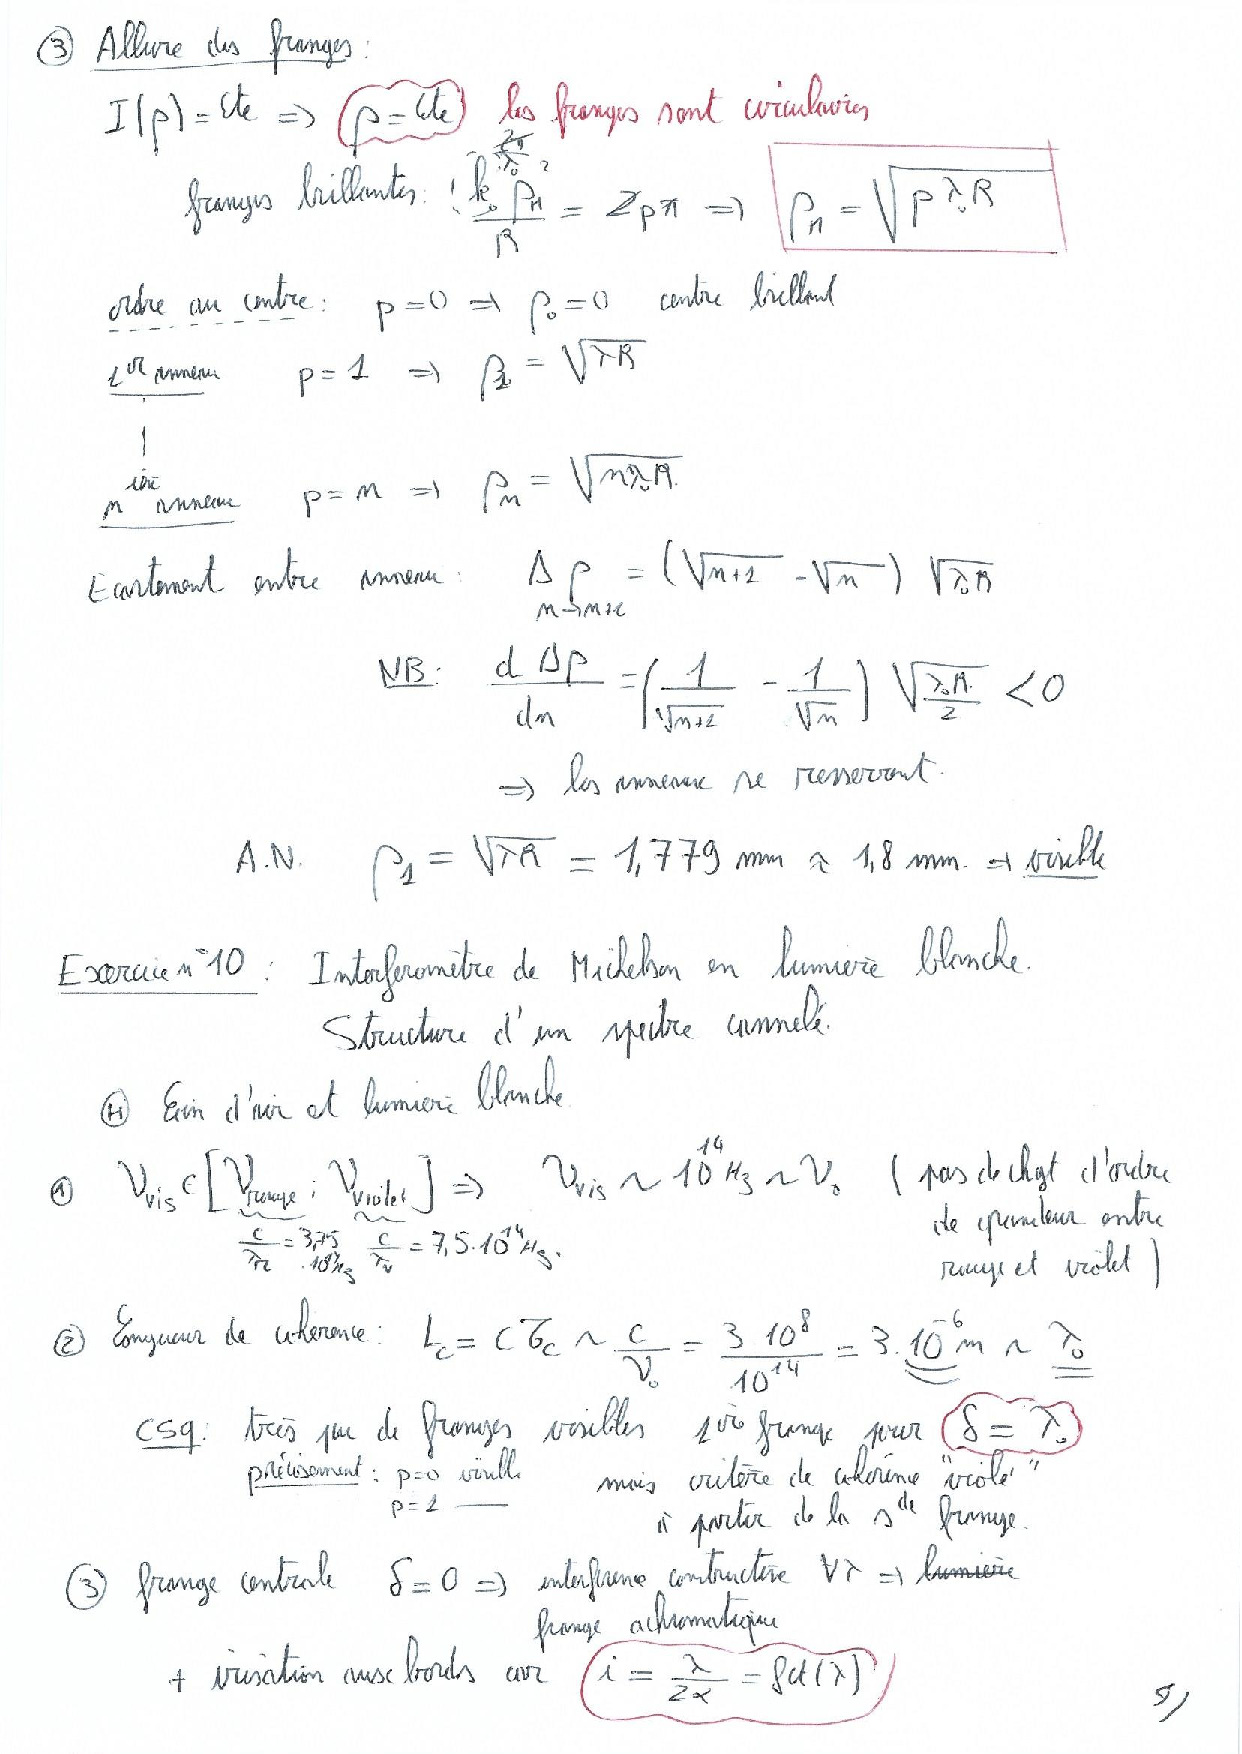 ③ Allure des franges :
I(ρ) = Cte => ρ = Cte les franges sont circulaires
franges brillantes : k₀ ρn² / R = 2pπ => ρn = √(pλ₀R)
2π/λ₀
ordre au centre : p=0 => ρ₀ = 0 centre brillant
1er anneau p = 1 => ρ1 = √(λR)
n ième anneau p = n => ρn = √(nλ₀R)
Ecartement entre anneau : Δρ n→n+1 = (√(n+1) - √n) √(λ₀R)
NB : dΔρ/dn = (1/√(n+1) - 1/√n) √(λ₀R)/2 < 0
=> les anneaux se resserrent.
A.N. ρ1 = √(λR) = 1,779 mm ≈ 1,8 mm. => visible
Exercice n°10 : Interféromètre de Michelson en lumière blanche.
Structure d'un spectre cannelé.
Ⓗ Coin d'air et lumière blanche
① νvis ∈ [νrouge ; νviolet] => νvis ~ 10^14 Hz ~ ν₀ ( pas de chgt d'ordre
c/λr = 3,75 .10^14 Hz c/λv = 7,5.10^14 Hz. de grandeur entre
rouge et violet )
② Longueur de cohérence : Lc = cτc ~ c/ν₀ = 3 10^8 / 10^14 = 3.10^-6 m ~ λ₀
csq : très peu de franges visibles 1ère frange pour δ = λ₀
précisément : p=0 visible mais critère de cohérence "violé"
p=1 — à partir de la sde frange.
③ frange centrale δ = 0 => interférence constructive ∀λ => lumière
frange achromatique
+ irisation aux bords car i = λ/2α = fct(λ)
5/